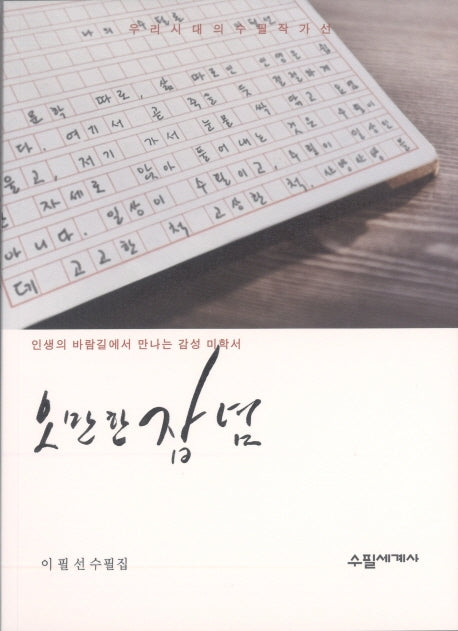 우리시대의수필작가선
나의 수필론
문학 따로, 삶 따로면 인생은 쉽
다. 여기서 곧 죽을 듯 절절하게
울고, 저기 가서 눈물 싹 닦고 눈요
자세로 앉아 들어내는 것은 수필이
아니다. 일상이 수필이고, 수필이 일상인
데 고고한 척 고상한 척.
인생의 바람길에서 만나는 감성 미학서
오만한 잡념
이필선수필집
수필세계사